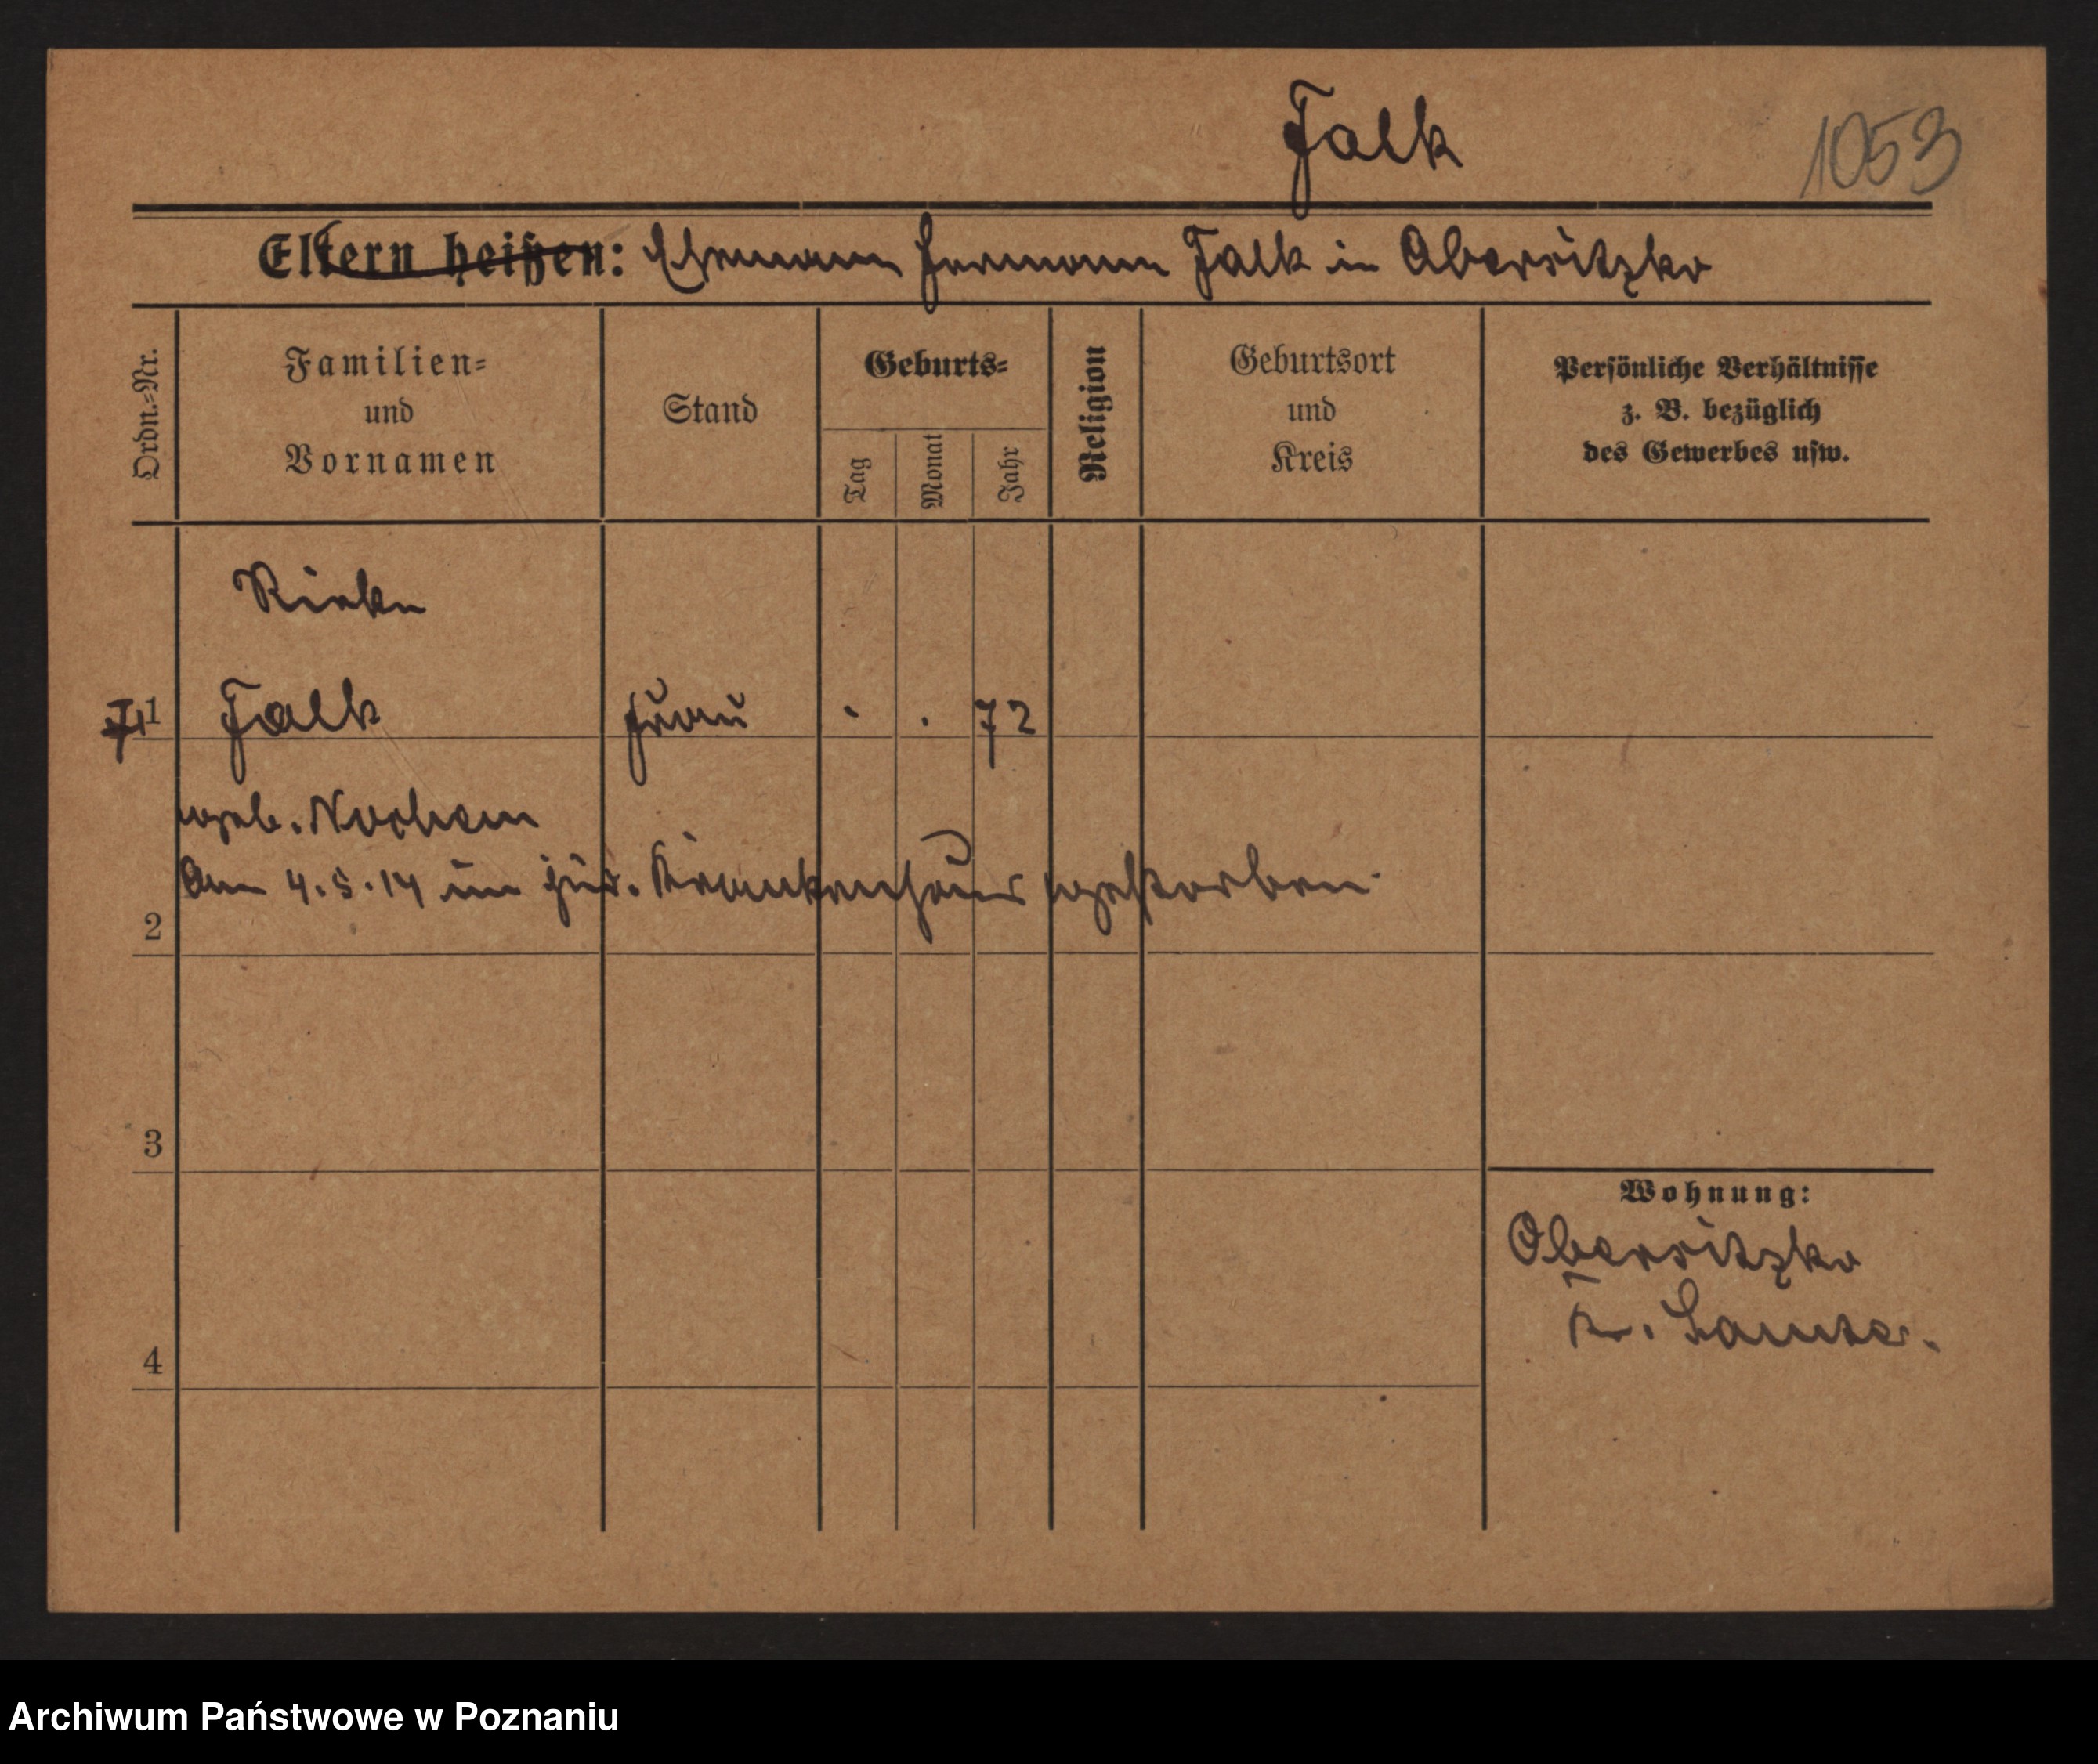 Falk 1053
Eltern heißen: Ehemann Hermann Falk in Obersitzko
Ordn.-Nr.
Familien-
und
Vornamen
Stand
Geburts-
Tag
Monat
Jahr
Religion
Geburtsort
und
Kreis
Persönliche Verhältnisse
z. B. bezüglich
des Gewerbes usw.
Rieke
1 Falk Frau . . 72
geb. Nochem
Am 4.5.14 im jüd. Krankenhaus gestorben.
2
3
Wohnung:
Obersitzko
Kr. Samter.
4
Archiwum Państwowe w Poznaniu